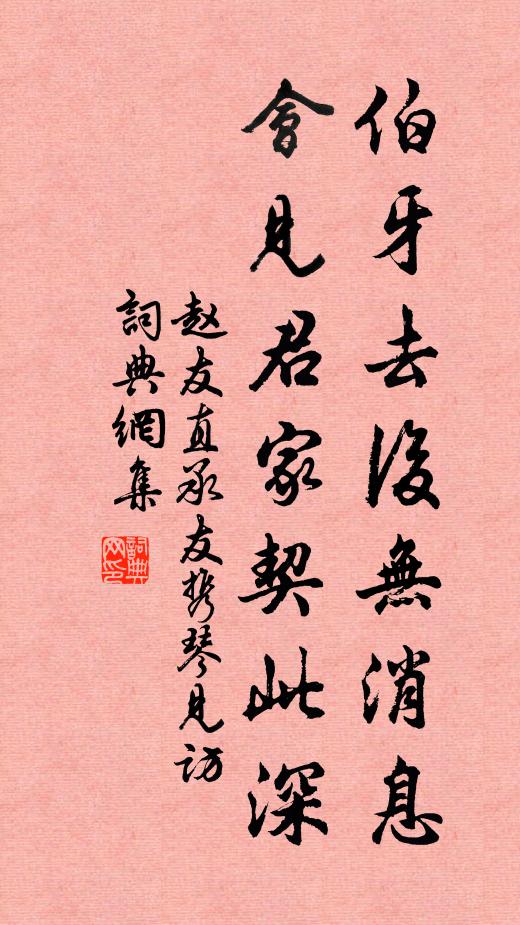 伯牙去後無消息
會見君家契此深
赵友直承友携琴見訪
詞典網集
詞典网印